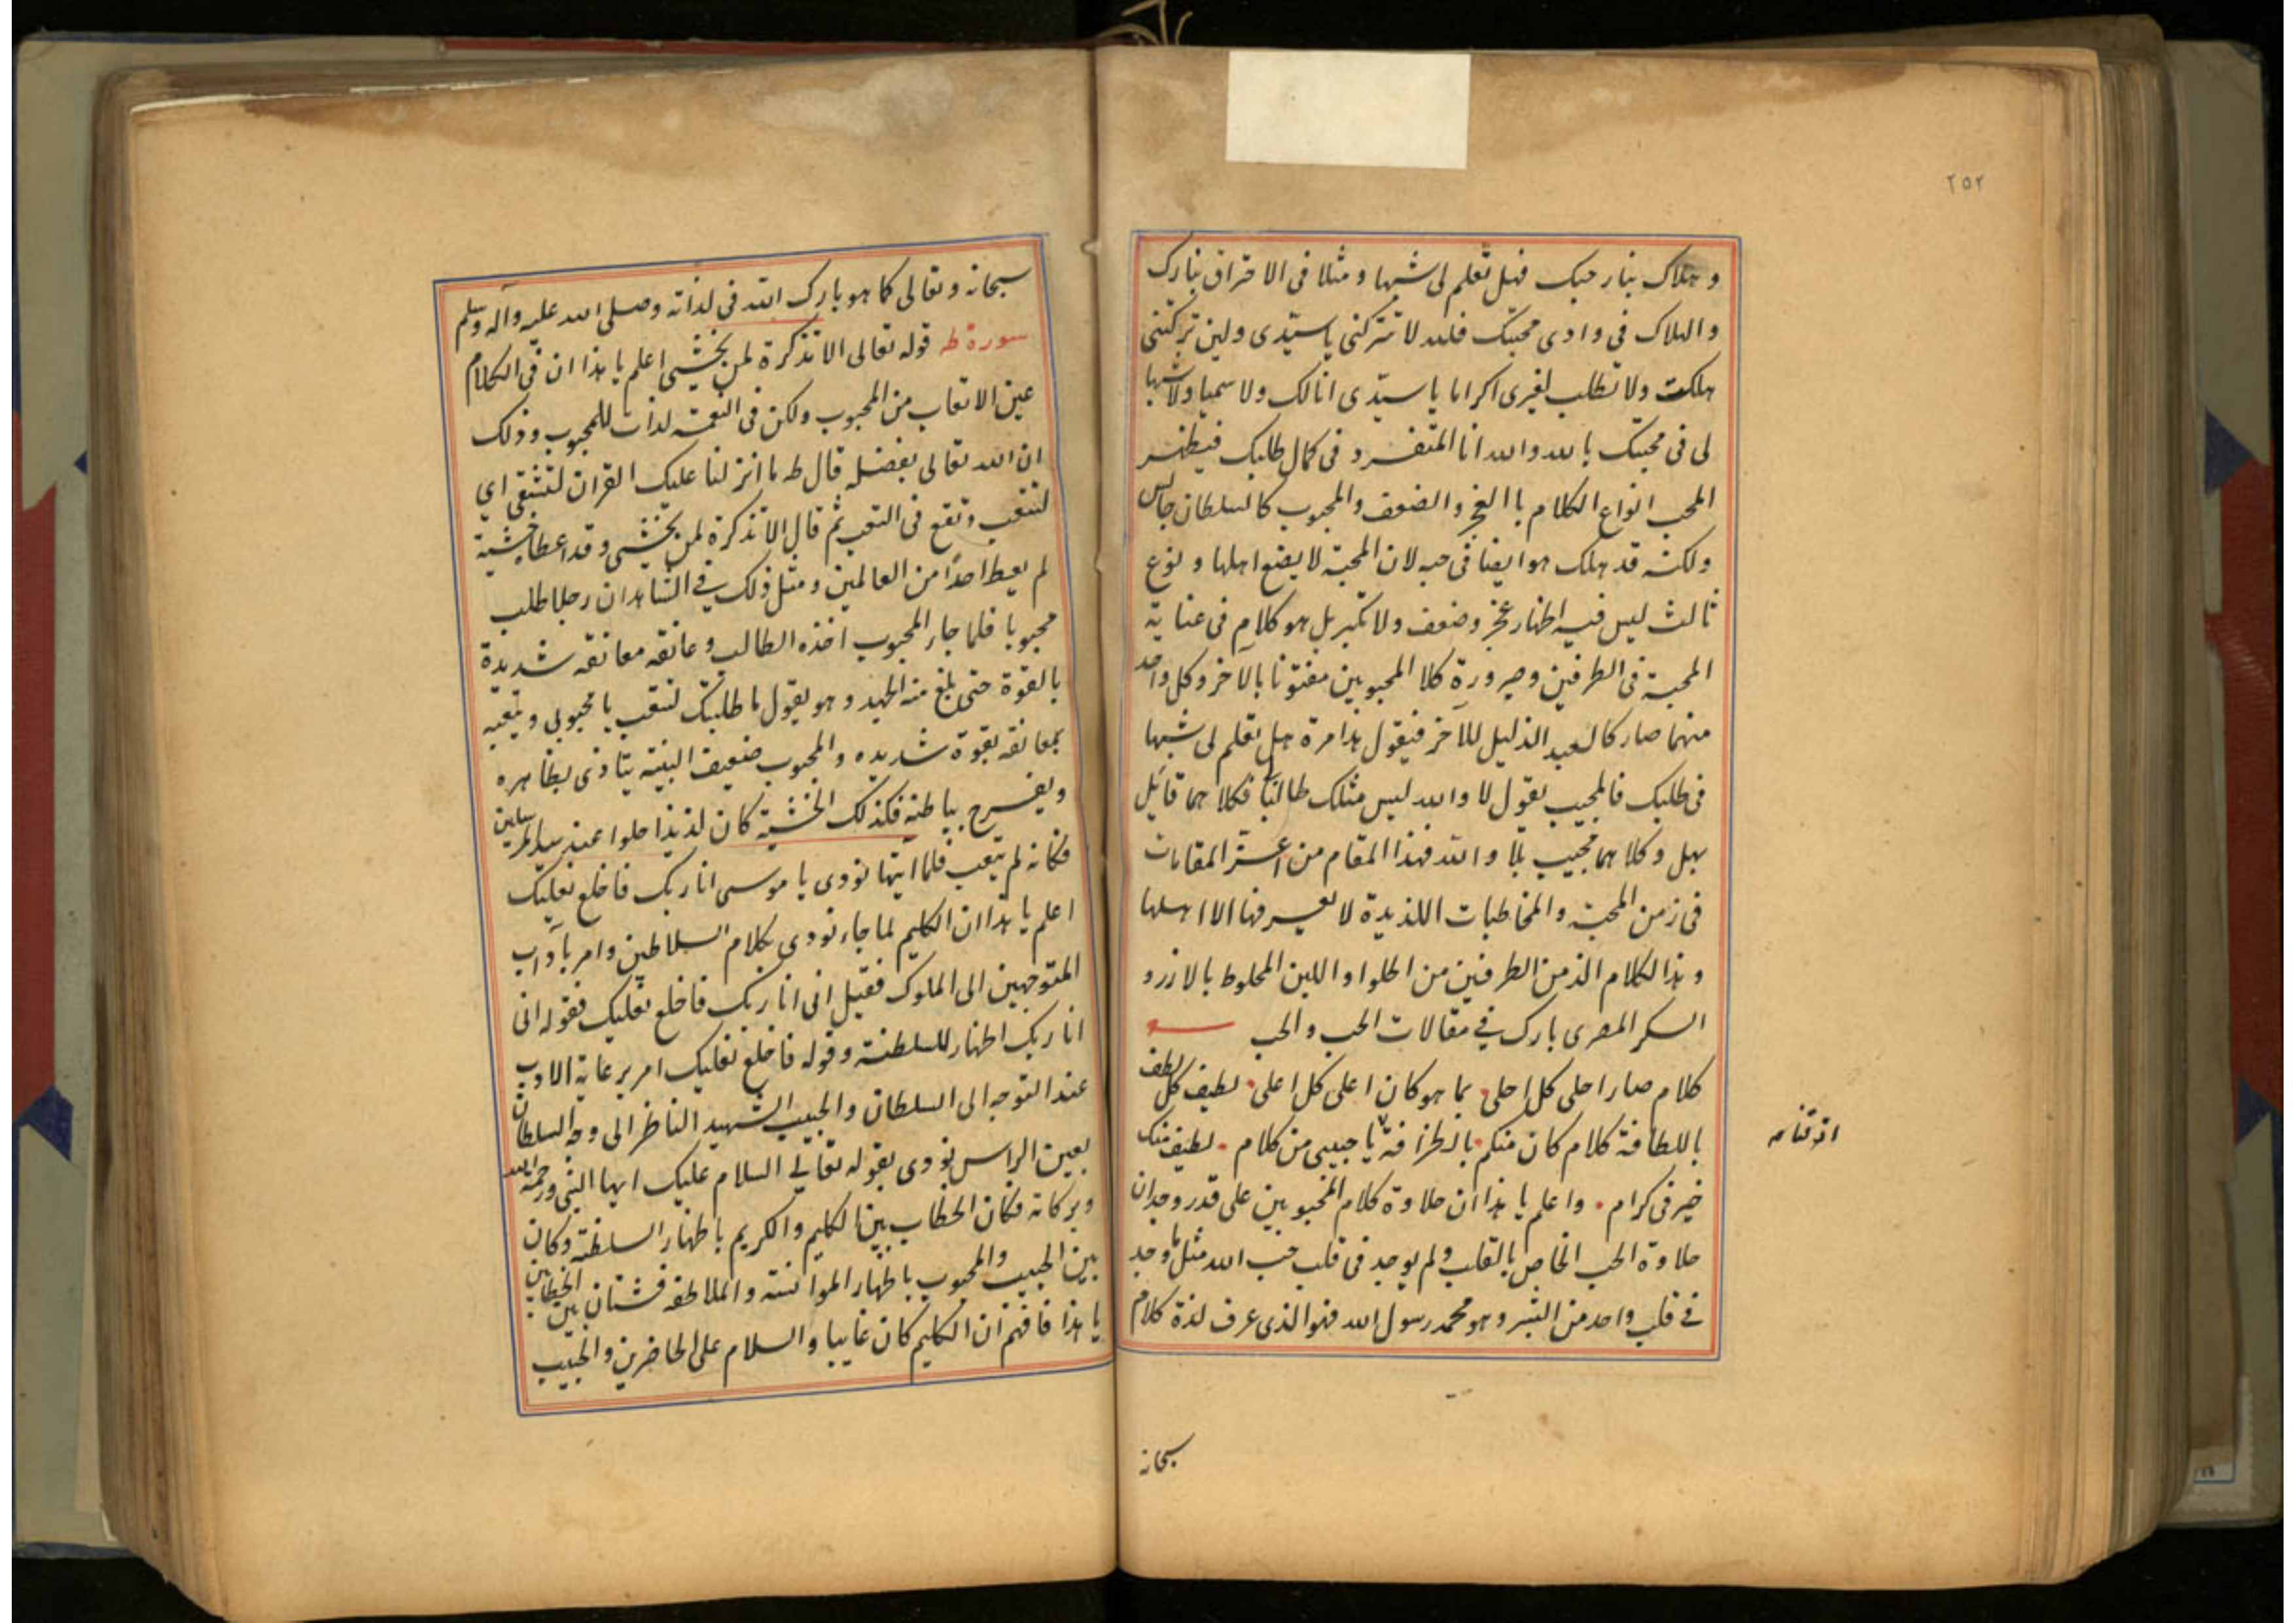 ٢٥٢
وهلاك بنار حبك فهل تعلم لى شبها ومثلا فى الاحتراق بنارك
والهلاك فى وادى محبتك فلله لا تتركنى يا سيدى ولين تركتنى
هلكت ولا تطلب لغيرى اكراما يا سيدى انا لك ولا سميا ولا شبها
لى فى محبتك بالله والله انا المتفرد فى كمال طلبك فيظهر
المحب انواع الكلام باالعجز والضعف والمحبوب كالسلطان جالس
ولكنه قد هلك هو ايضا فى حبه لان المحبة لا يضع اهلها ونوع
ثالث ليس فيه اظهار عجز وضعف ولا تكبر بل هو كلام فى عناية
المحبة فى الطرفين وصيرورة كلا المحبوبين مفتونا بالآخر وكل واحد
منهما صار كالعبد الذليل للآخر فيقول هذا مرة هل تعلم لى شبها
فى طلبك فالمجيب يقول لا والله ليس مثلك طالبا فكلاهما قائل
بهل وكلاهما مجيب بلا والله فهذا المقام من اعز المقامات
فى زمن المحبة والمخاطبات اللذيذة لا يعرفها الا اهلها
وهذا الكلام الذ من الطرفين من الحلوا واللبن المخلوط بالارز و
السكر المصرى بارك فى مقالات الحب والحب
كلام صار احلى كل احلى بما هو كان اعلى كل اعلى لطيف كل لطف
باللطافة كلام كان منكم بالظرافة يا حبيبى من كلام لطيف منك
خير فى كرام واعلم يا هذا ان حلاوة كلام المحبوبين على قدر وجدان
حلاوة الحب الخاص بالقلب ولم يوجد فى قلب حب الله مثل ما وجد
فى قلب واحد من البشر وهو محمد رسول الله فهو الذى عرف لذة كلام
سبحانه
سبحانه وتعالى كما هو بارك الله فى لذاته وصلى الله عليه وآله وسلم
سورة طه قوله تعالى الا تذكرة لمن يخشى اعلم يا هذا ان فى الكلام
عين الاتعاب من المحبوب ولكن فى النعمة لذات للمحبوب وذلك
ان الله تعالى بفضله قال طه ما انزلنا عليك القران لتشقى اي
لتتعب وتقع فى التعب ثم قال الا تذكرة لمن يخشى وقد اعطاه خشية
لم يعط احدًا من العالمين ومثل ذلك فى الشاهد ان رجلا طلب
محبوبا فلما جاء المحبوب اخذه الطالب وعانقه معانقه شديدة
بالقوة حتى بلغ منه الجهد وهو يقول ما طلبتك لتتعب يا محبوبى ويتعبه
بمعانقه بقوة شديده والمحبوب ضعيف البنية يتاذى بظاهره
ويفرح بباطنه فكذلك الخشية كان لذيذا حلوا عند سيد المرسلين
فكانه لم يتعب فلما اتيها نودى يا موسى انا ربك فاخلع نعليك
اعلم يا هذا ان الكليم لما جاء نودى بكلام السلاطين وامر بآداب
المتوجهين الى الملوك فقيل انى انا ربك فاخلع نعليك فقوله انى
انا ربك اظهار للسلطنة وقوله فاخلع نعليك امر برعاية الادب
عند التوجه الى السلطان والحبيب الشهيد الناظر الى وجه السلطان
بعين الراس نودى بقوله تعالى السلام عليك ايها النبى ورحمة الله
وبركاته فكان الخطاب بين الكليم والكريم باظهار السلطنة وكان
بين الحبيب والمحبوب باظهار الموانسة والملاطفه فشتان بين الخطابين
يا هذا فافهم ان الكليم كان غايبا والسلام على الحاضرين والحبيب